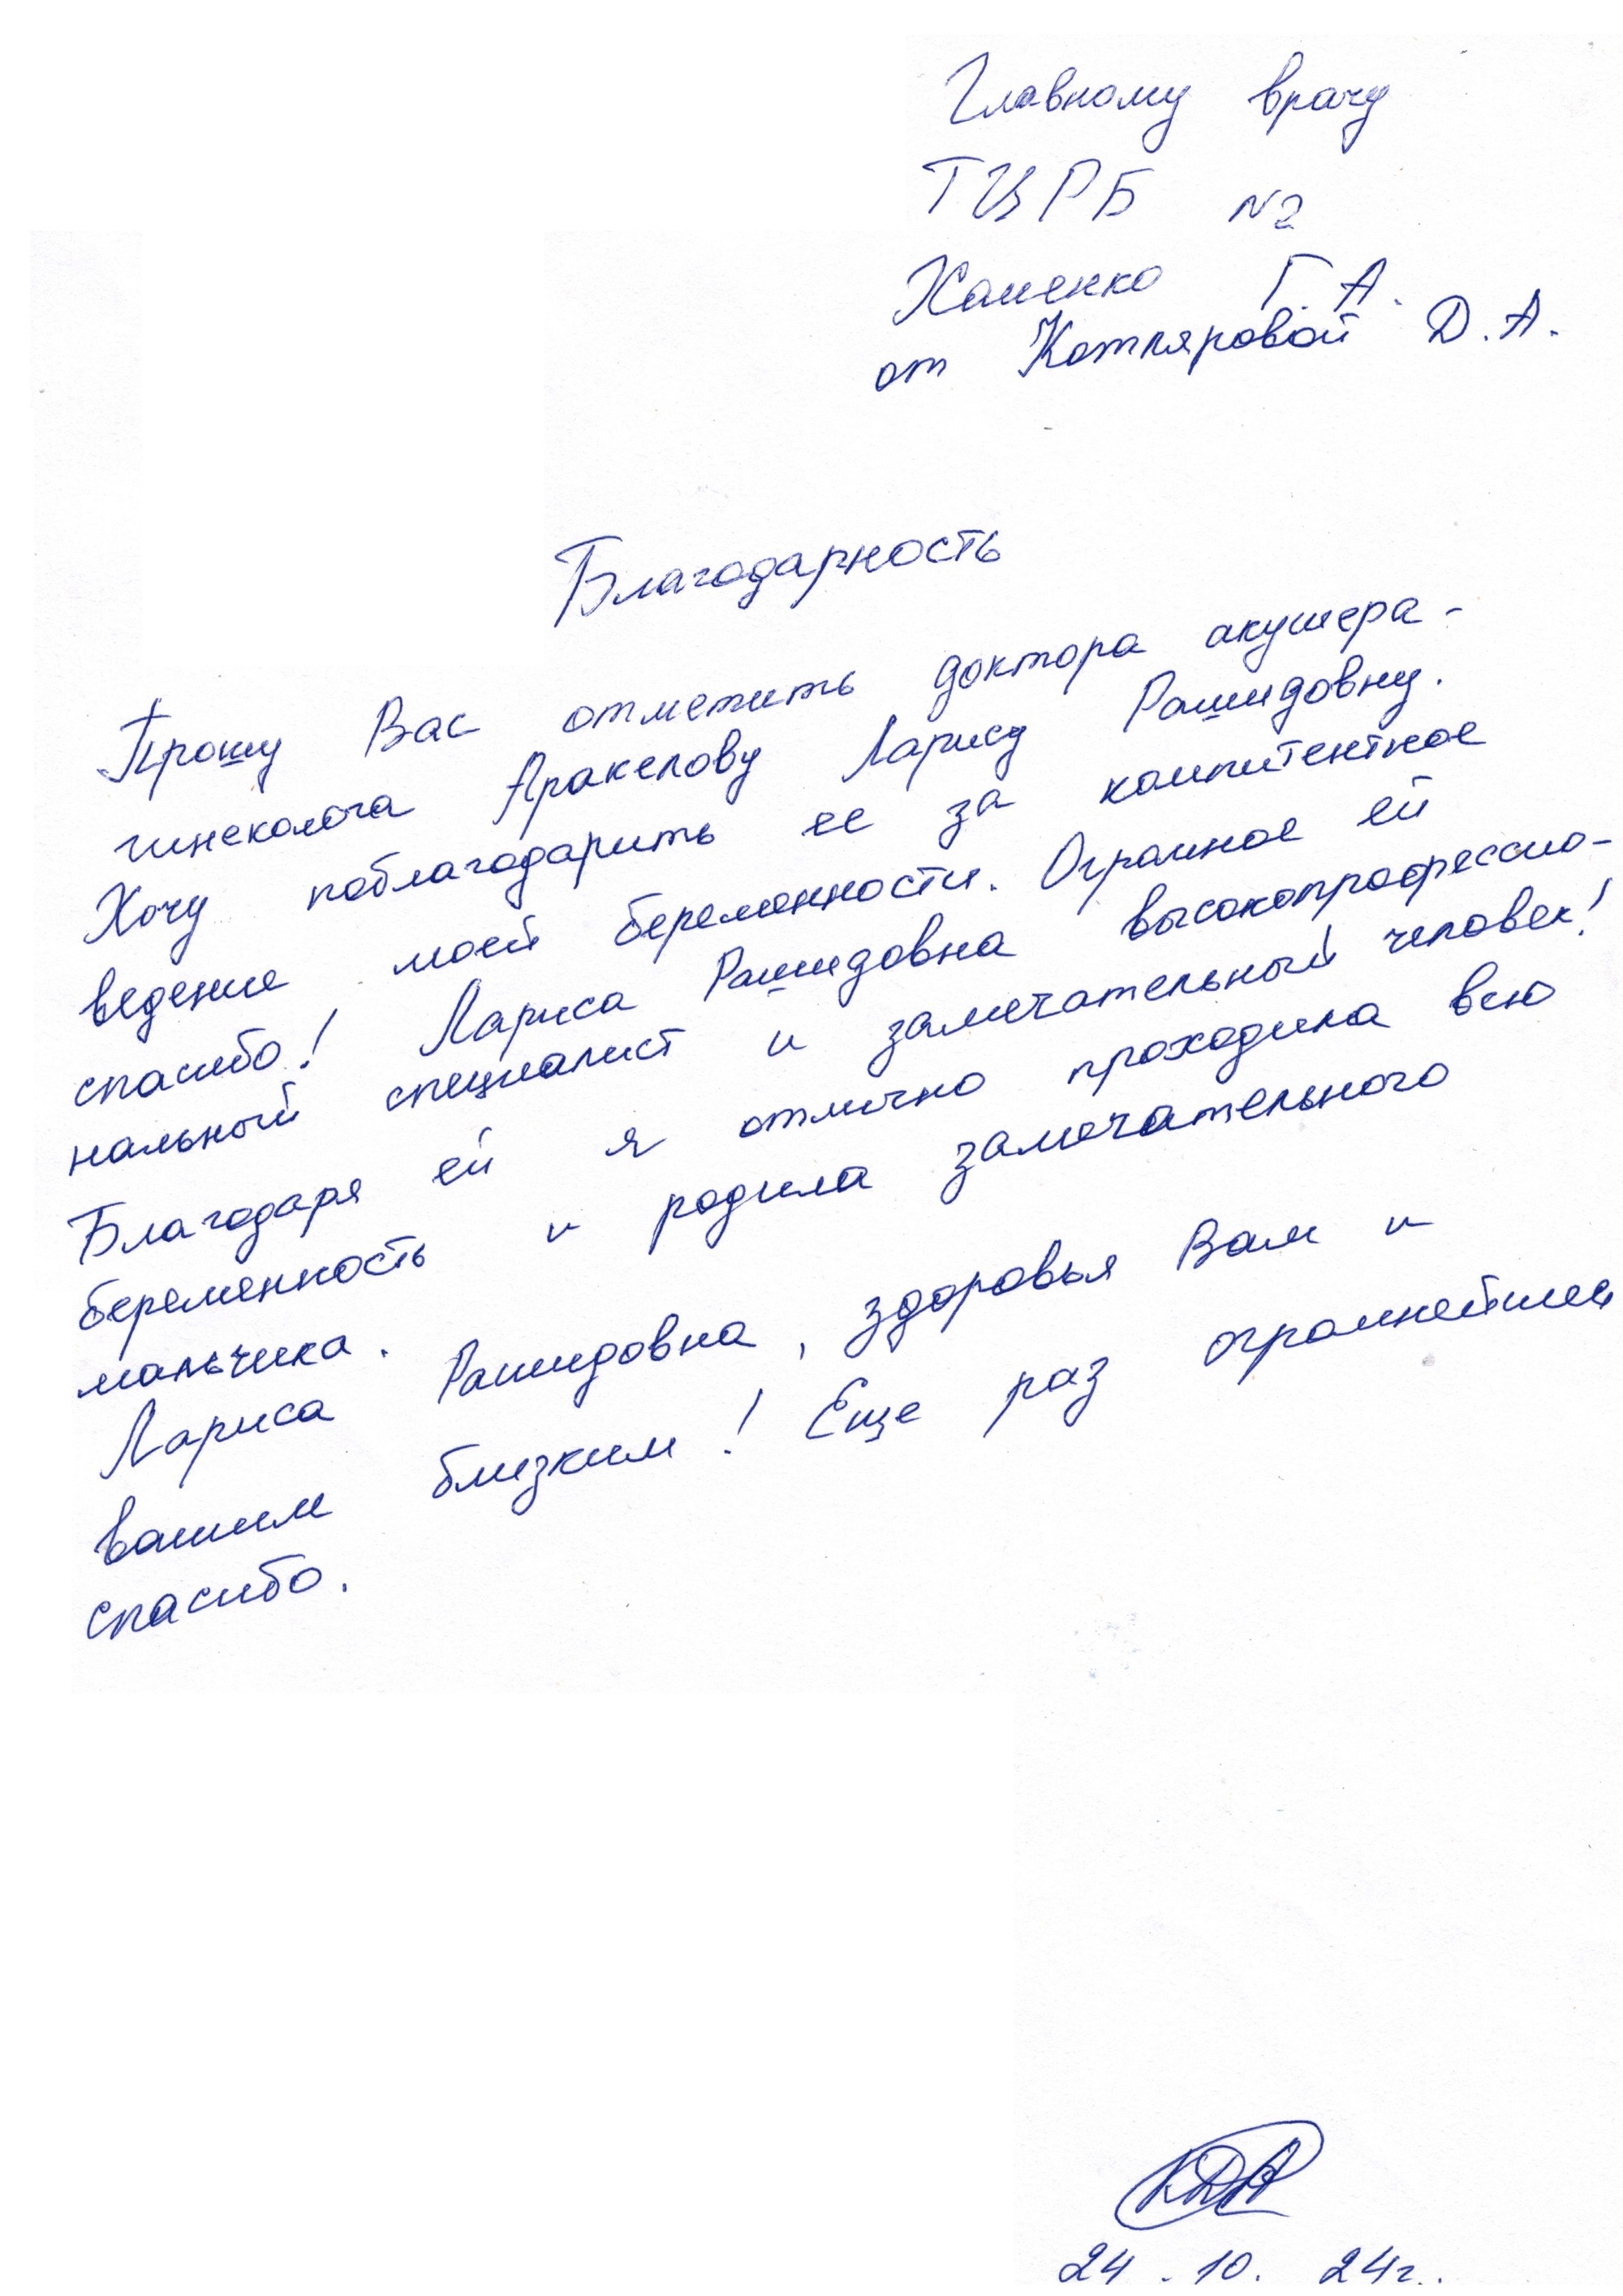 Главному врачу
ТЦРБ №2
Хаменко Г.А.
от Котляровой Д.А.
Благодарность
Прошу Вас отметить доктора акушера-
гинеколога Аракелову Ларису Рашидовну.
Хочу поблагодарить ее за компитентное
ведение моей беременности. Огромное ей
спасибо! Лариса Рашидовна высокопрофессио-
нальный специалист и замечательный человек!
Благодаря ей я отлично проходила всю
беременность и родила замечательного
мальчика.
Лариса Рашидовна, здоровья Вам и
вашим близким! Еще раз огромнейшее
спасибо.
КДА
24.10.24г.